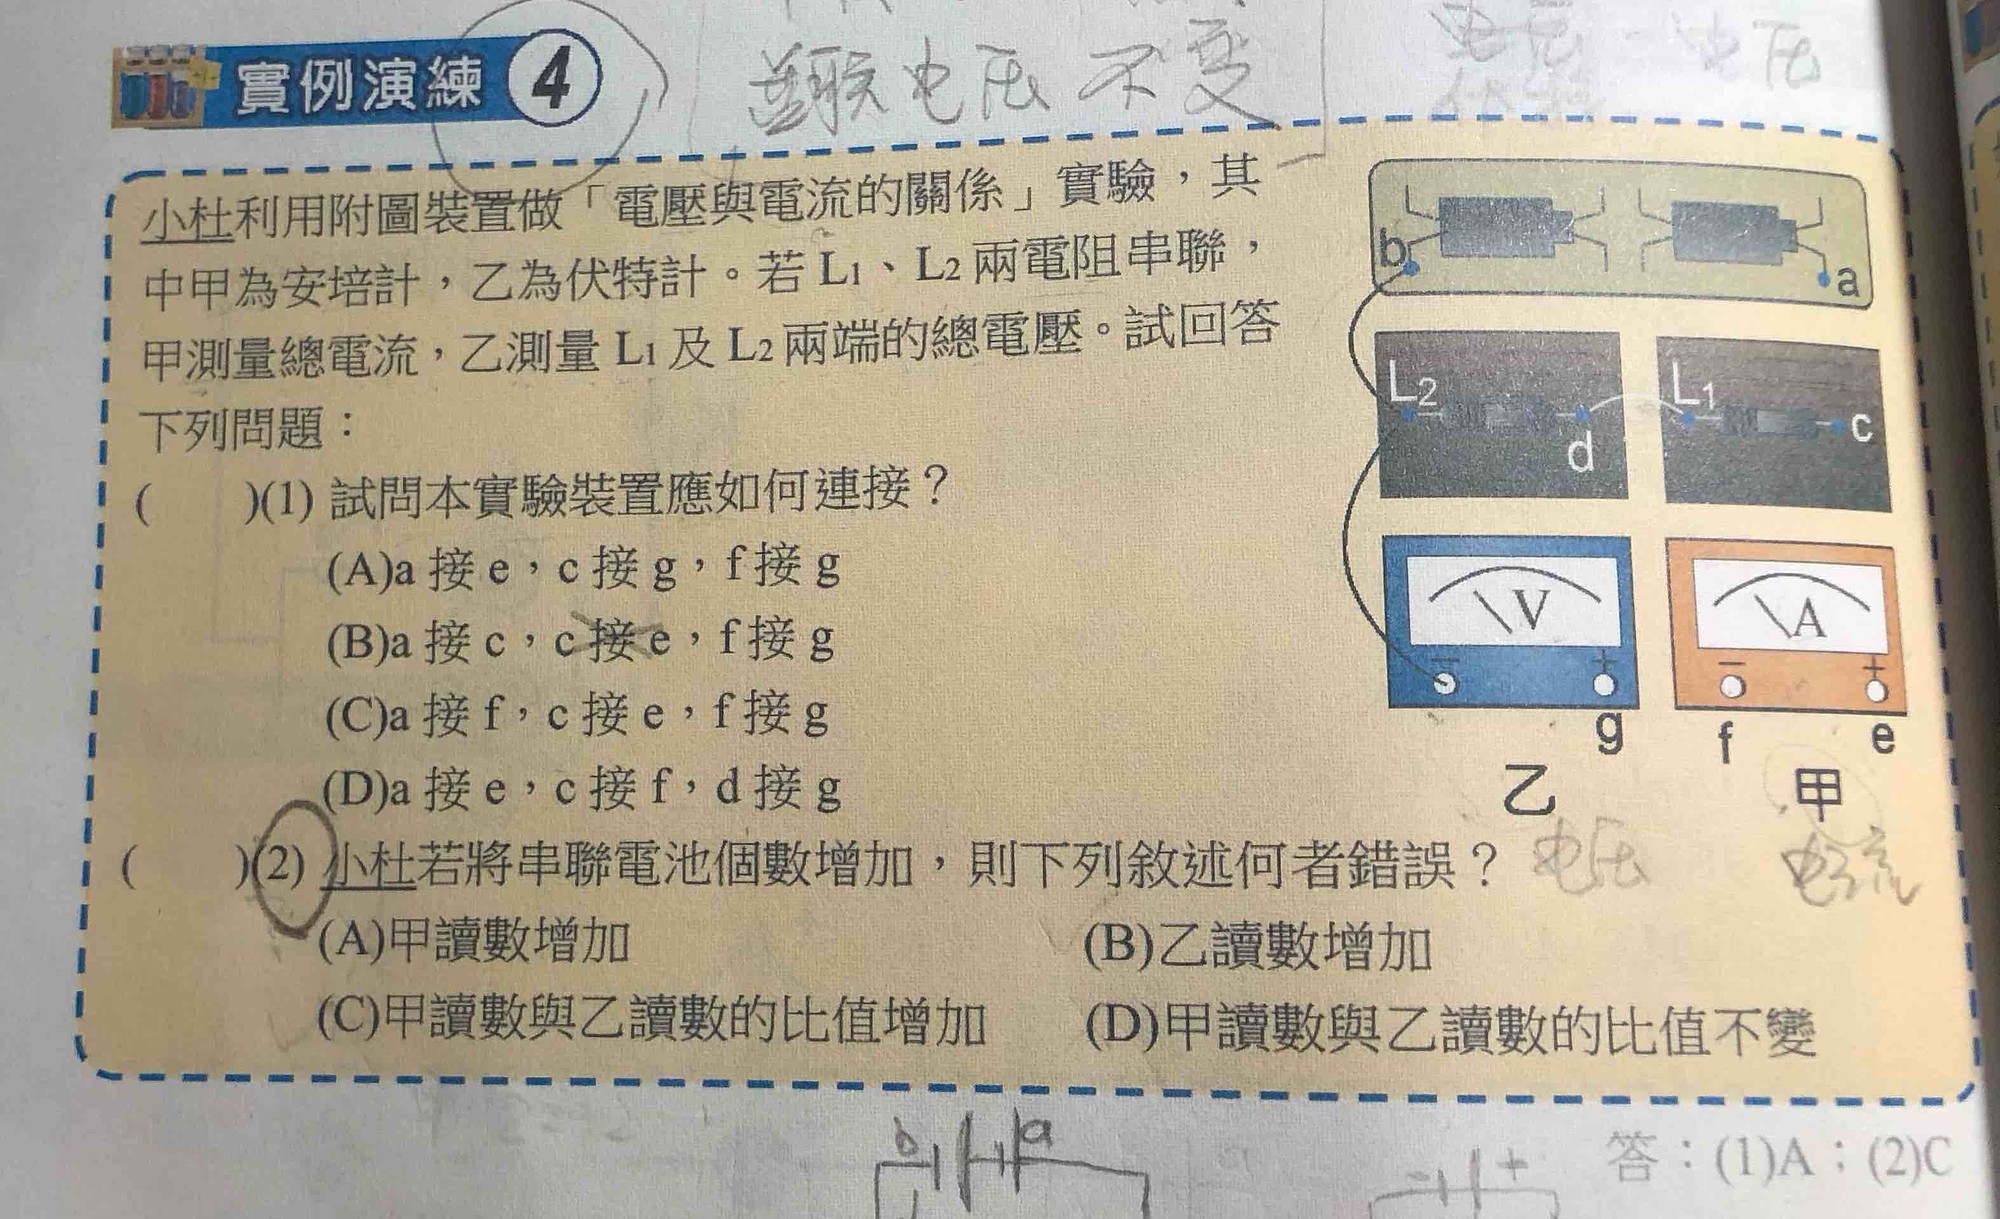 並联电压不变
实例演練 4
小杜利用附圖裝置做「電壓與電流的關係」實驗，其
中甲為安培計，乙為伏特計。若 L1、L2 兩電阻串聯，
甲測量總電流，乙測量 L1 及 L2 兩端的總電壓。試回答
下列問題：
(　　)(1) 試問本實驗裝置應如何連接？
(A)a 接 e，c 接 g，f 接 g
(B)a 接 c，c 接 e，f 接 g
(C)a 接 f，c 接 e，f 接 g
(D)a 接 e，c 接 f，d 接 g
(　　)(2) 小杜若將串聯電池個數增加，則下列敘述何者錯誤？
(A)甲讀數增加　(B)乙讀數增加
(C)甲讀數與乙讀數的比值增加　(D)甲讀數與乙讀數的比值不變
b
a
L2
d
L1
c
V
− +
g
乙
电压
A
− +
f
e
甲
电流
答：(1)A；(2)C
b
a
− +